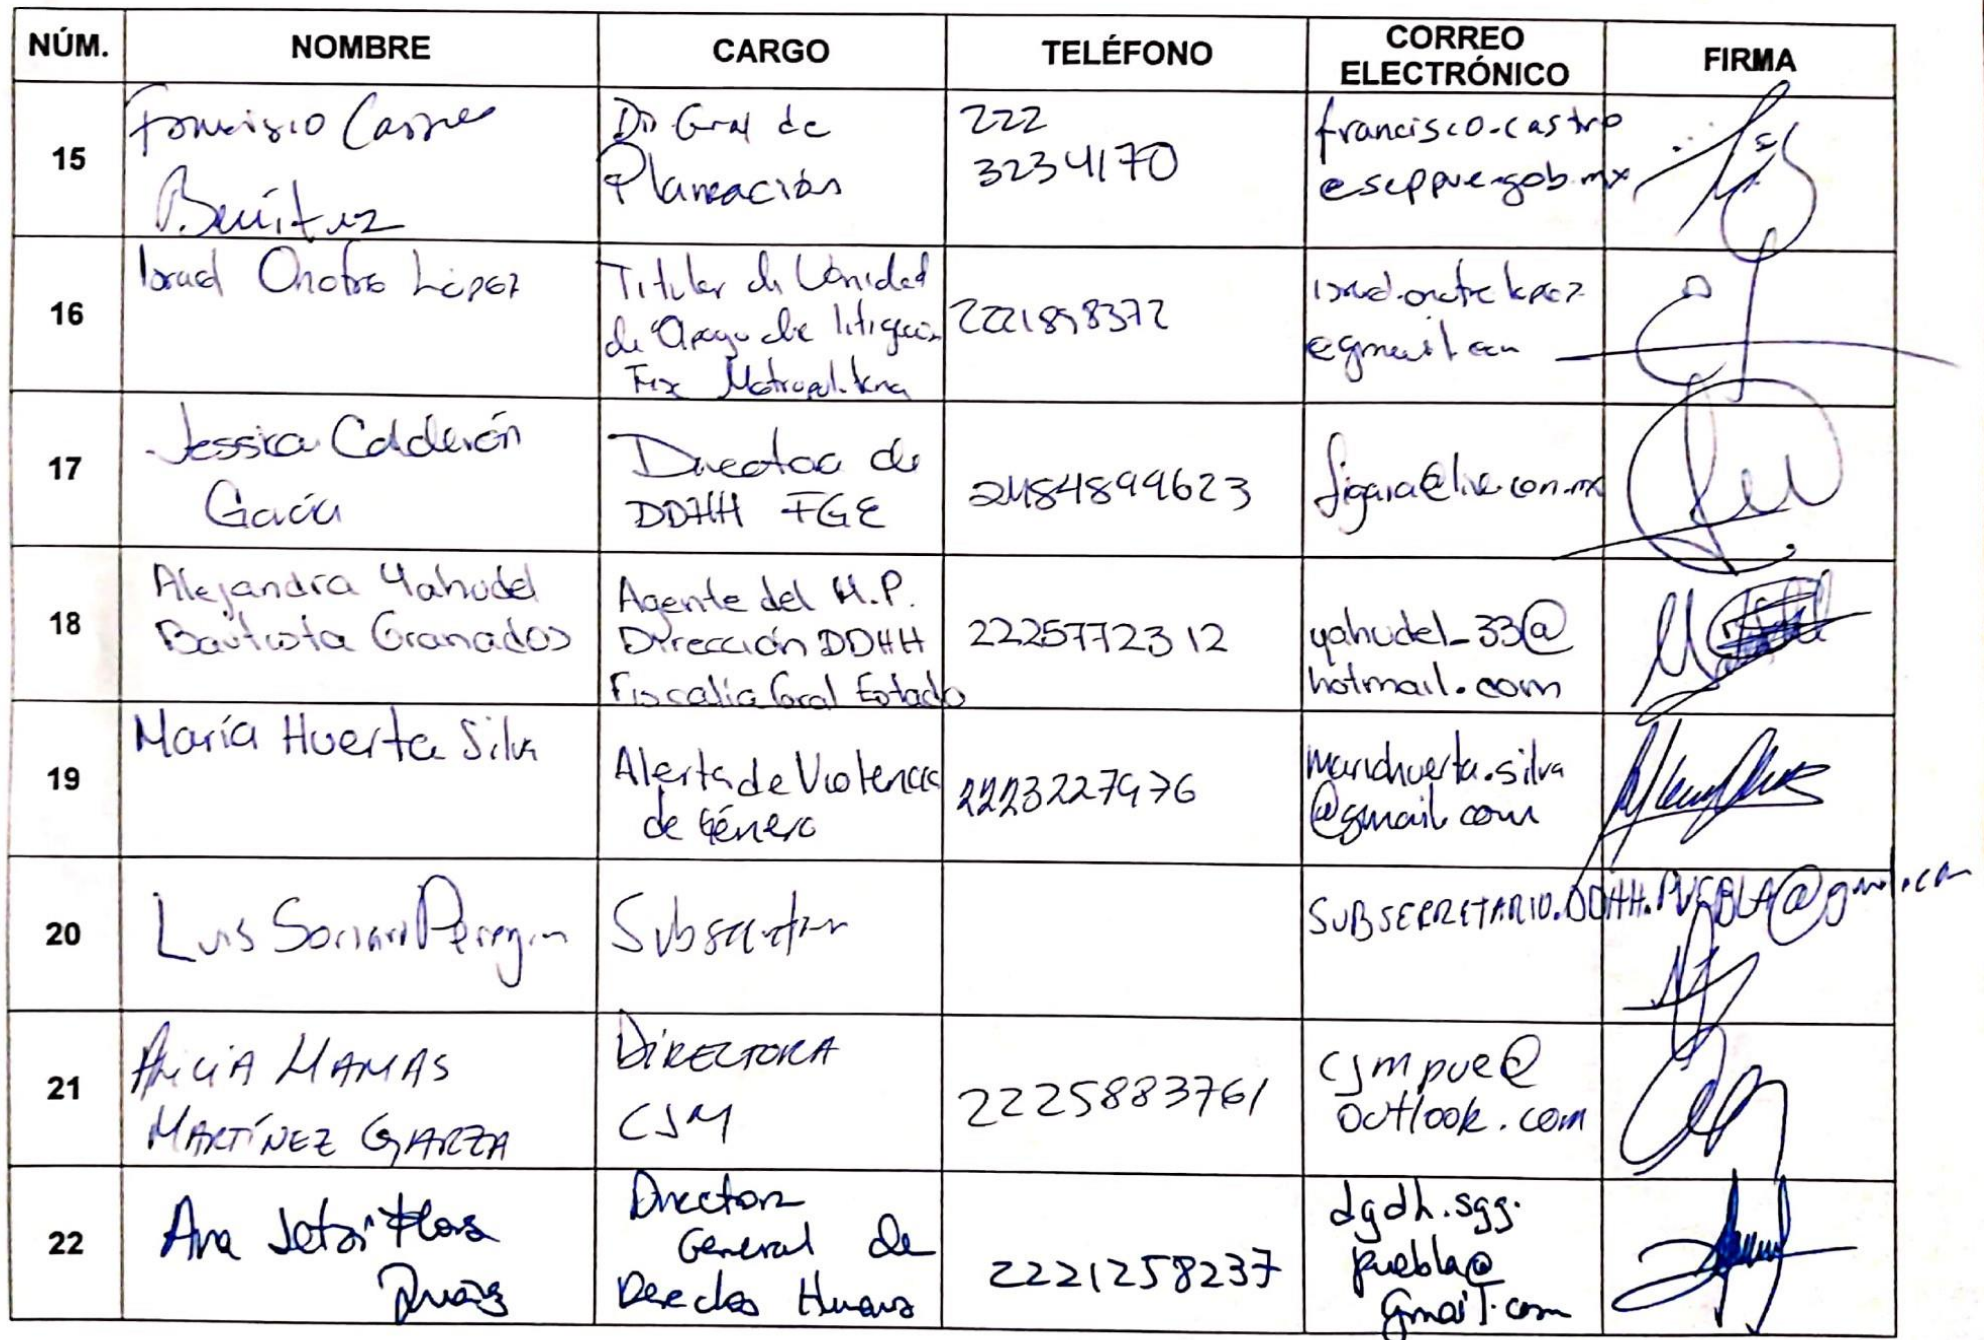 NÚM. NOMBRE CARGO TELÉFONO CORREO ELECTRÓNICO FIRMA
15
Francisco Castro
Benítez
Dir Gral de
Planeación
222
3234170
francisco.castro
@seppue.gob.mx
16
Israel Onofre López
Titular de Unidad
de Apoyo de litigación
Metropolitana
2221898372
israel.onofre.lopez
@gmail.com
17
Jessica Calderón
García
Directora de
DDHH FGE
2484899623
figara@live.com.mx
18
Alejandra Yahudel
Bautista Granados
Agente del M.P.
Dirección DDHH
Fiscalía Gral Estado
2225772312
yahudel_33@
hotmail.com
19
María Huerta Silva
Alerta de Violencia
de Género
2223227976
mariahuerta.silva
@gmail.com
20
Luis Soriano Peregrina
Subsecretario
SUBSECRETARIO.DDHH.PUEBLA@gmail.com
21
ALICIA
MARTÍNEZ GARZA
DIRECTORA
CJM
2225883761
cjmpue@
outlook.com
22
Ana Jetzi Flores
Directora
General de
Derechos Humanos
2221258237
dgdh.sgg.
puebla@
gmail.com